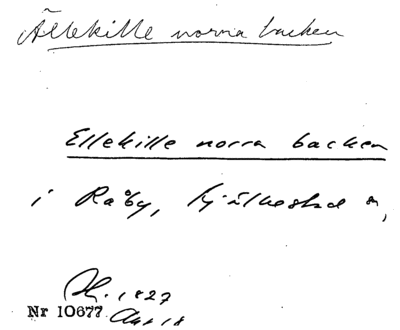 Ällekille norra backen
Ellekille norra backen
i Råby, Kjälkestad sn,
1827
Nr 10677